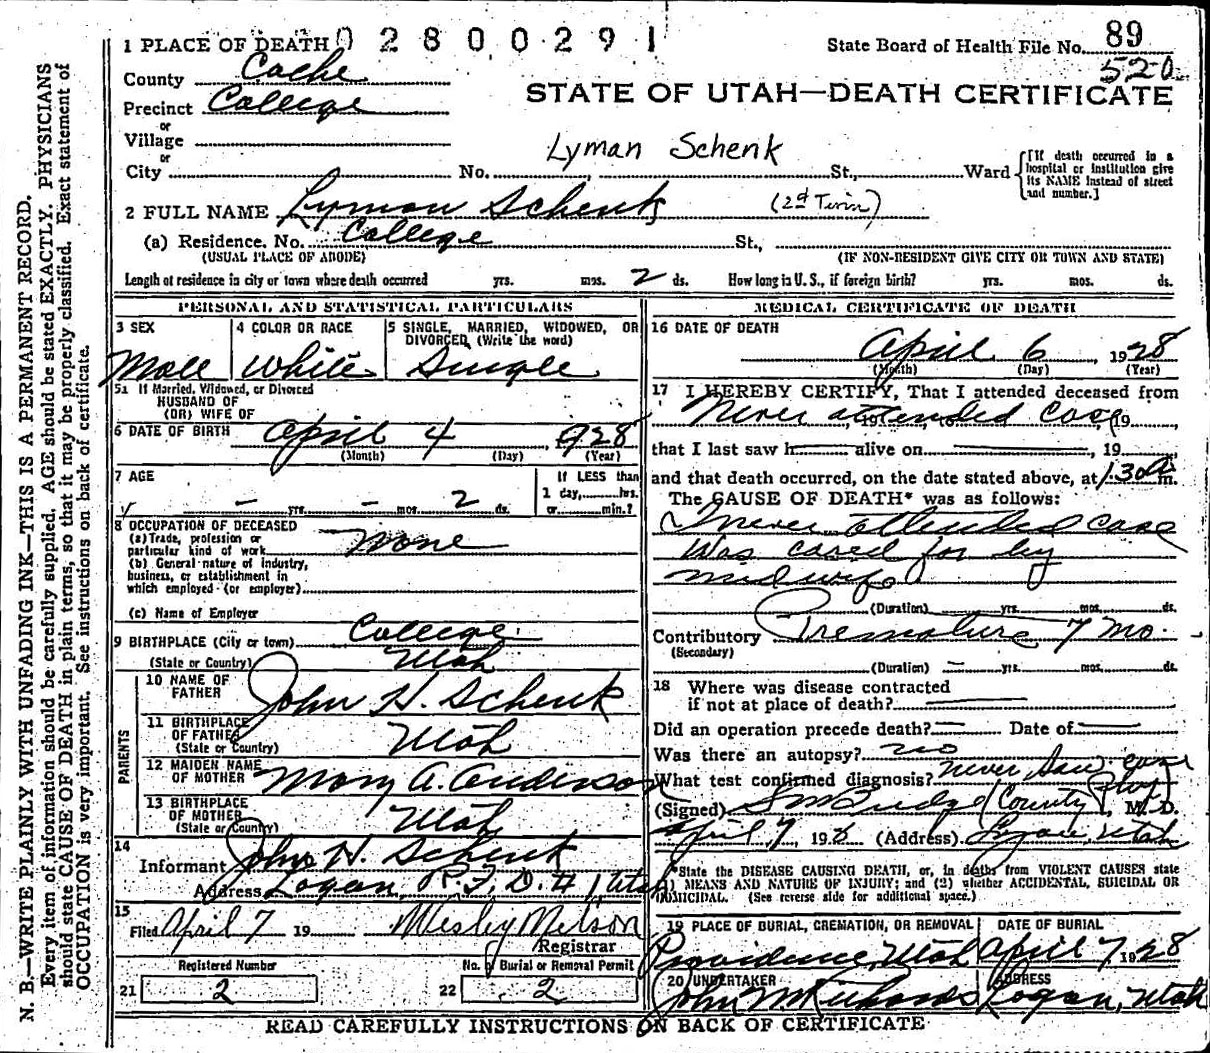 1 PLACE OF DEATH 0 2 8 0 0 2 9 1
State Board of Health File No. 89
520
County Cache
STATE OF UTAH—DEATH CERTIFICATE
Precinct College
or
Village
or
Lyman Schenk
City No. St., Ward
[If death occurred in a hospital or institution give its NAME instead of street and number.]
2 FULL NAME Lyman Schenk (2d Twin)
(a) Residence. No. College St.,
(USUAL PLACE OF ABODE) (IF NON-RESIDENT GIVE CITY OR TOWN AND STATE)
Length of residence in city or town where death occurred yrs. mos. 2 ds. How long in U. S., if foreign birth? yrs. mos. ds.
PERSONAL AND STATISTICAL PARTICULARS
3 SEX 4 COLOR OR RACE 5 SINGLE, MARRIED, WIDOWED, OR DIVORCED, (Write the word)
Male White Single
5a If Married, Widowed, or Divorced
HUSBAND OF
(OR) WIFE OF
6 DATE OF BIRTH April 4, 1928
(Month) (Day) (Year)
7 AGE If LESS than
1 day, hrs.
– yrs. – mos. 2 ds. or min.?
8 OCCUPATION OF DECEASED
(a) Trade, profession or
particular kind of work None
(b) General nature of industry,
business, or establishment in
which employed (or employer)
(c) Name of Employer
9 BIRTHPLACE (City or town) College
(State or Country) Utah
PARENTS
10 NAME OF FATHER John H. Schenk
11 BIRTHPLACE OF FATHER (State or Country) Utah
12 MAIDEN NAME OF MOTHER Mary A. Anderson
13 BIRTHPLACE OF MOTHER (State or Country) Utah
14 Informant John H. Schenk
Address Logan, R.F.D. 4, Utah
15 Filed April 7 19 Wesley Nelson
Registrar
Registered Number No. of Burial or Removal Permit
21 2 22 2
MEDICAL CERTIFICATE OF DEATH
16 DATE OF DEATH
April 6, 1928
(Month) (Day) (Year)
17 I HEREBY CERTIFY, That I attended deceased from
Never attended case, 19
that I last saw h alive on , 19
and that death occurred, on the date stated above, at 1:30 a m.
The CAUSE OF DEATH* was as follows:
I never attended case
Was cared for by
midwife
(Duration) yrs. mos. ds.
Contributory Premature 7 mo.
(Secondary)
(Duration) yrs. mos. ds.
18 Where was disease contracted
if not at place of death?
Did an operation precede death? Date of
Was there an autopsy? no
What test confirmed diagnosis? never saw case
(Signed) Budge (County Phy.), M. D.
April 7, 1928 (Address) Logan, Utah
*State the DISEASE CAUSING DEATH, or, in deaths from VIOLENT CAUSES state
(1) MEANS AND NATURE OF INJURY; and (2) whether ACCIDENTAL, SUICIDAL OR
HOMICIDAL. (See reverse side for additional space.)
19 PLACE OF BURIAL, CREMATION, OR REMOVAL DATE OF BURIAL
Providence, Utah April 7, 1928
20 UNDERTAKER ADDRESS
John W. Richards Logan, Utah
READ CAREFULLY INSTRUCTIONS ON BACK OF CERTIFICATE
N. B.—WRITE PLAINLY WITH UNFADING INK—THIS IS A PERMANENT RECORD.
Every item of information should be carefully supplied. AGE should be stated EXACTLY. PHYSICIANS
should state CAUSE OF DEATH in plain terms, so that it may be properly classified. Exact statement of
OCCUPATION is very important. See instructions on back of certificate.